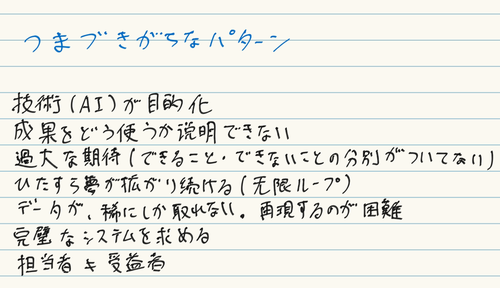 つまづきがちなパターン
技術(AI)が目的化
成果をどう使うか説明できない
過大な期待(できること・できないことの分別がついてない)
ひたすら夢が拡がり続ける(无限ループ)
データが、稀にしか取れない。再現するのが困難
完璧なシステムを求める
担当者≠受益者